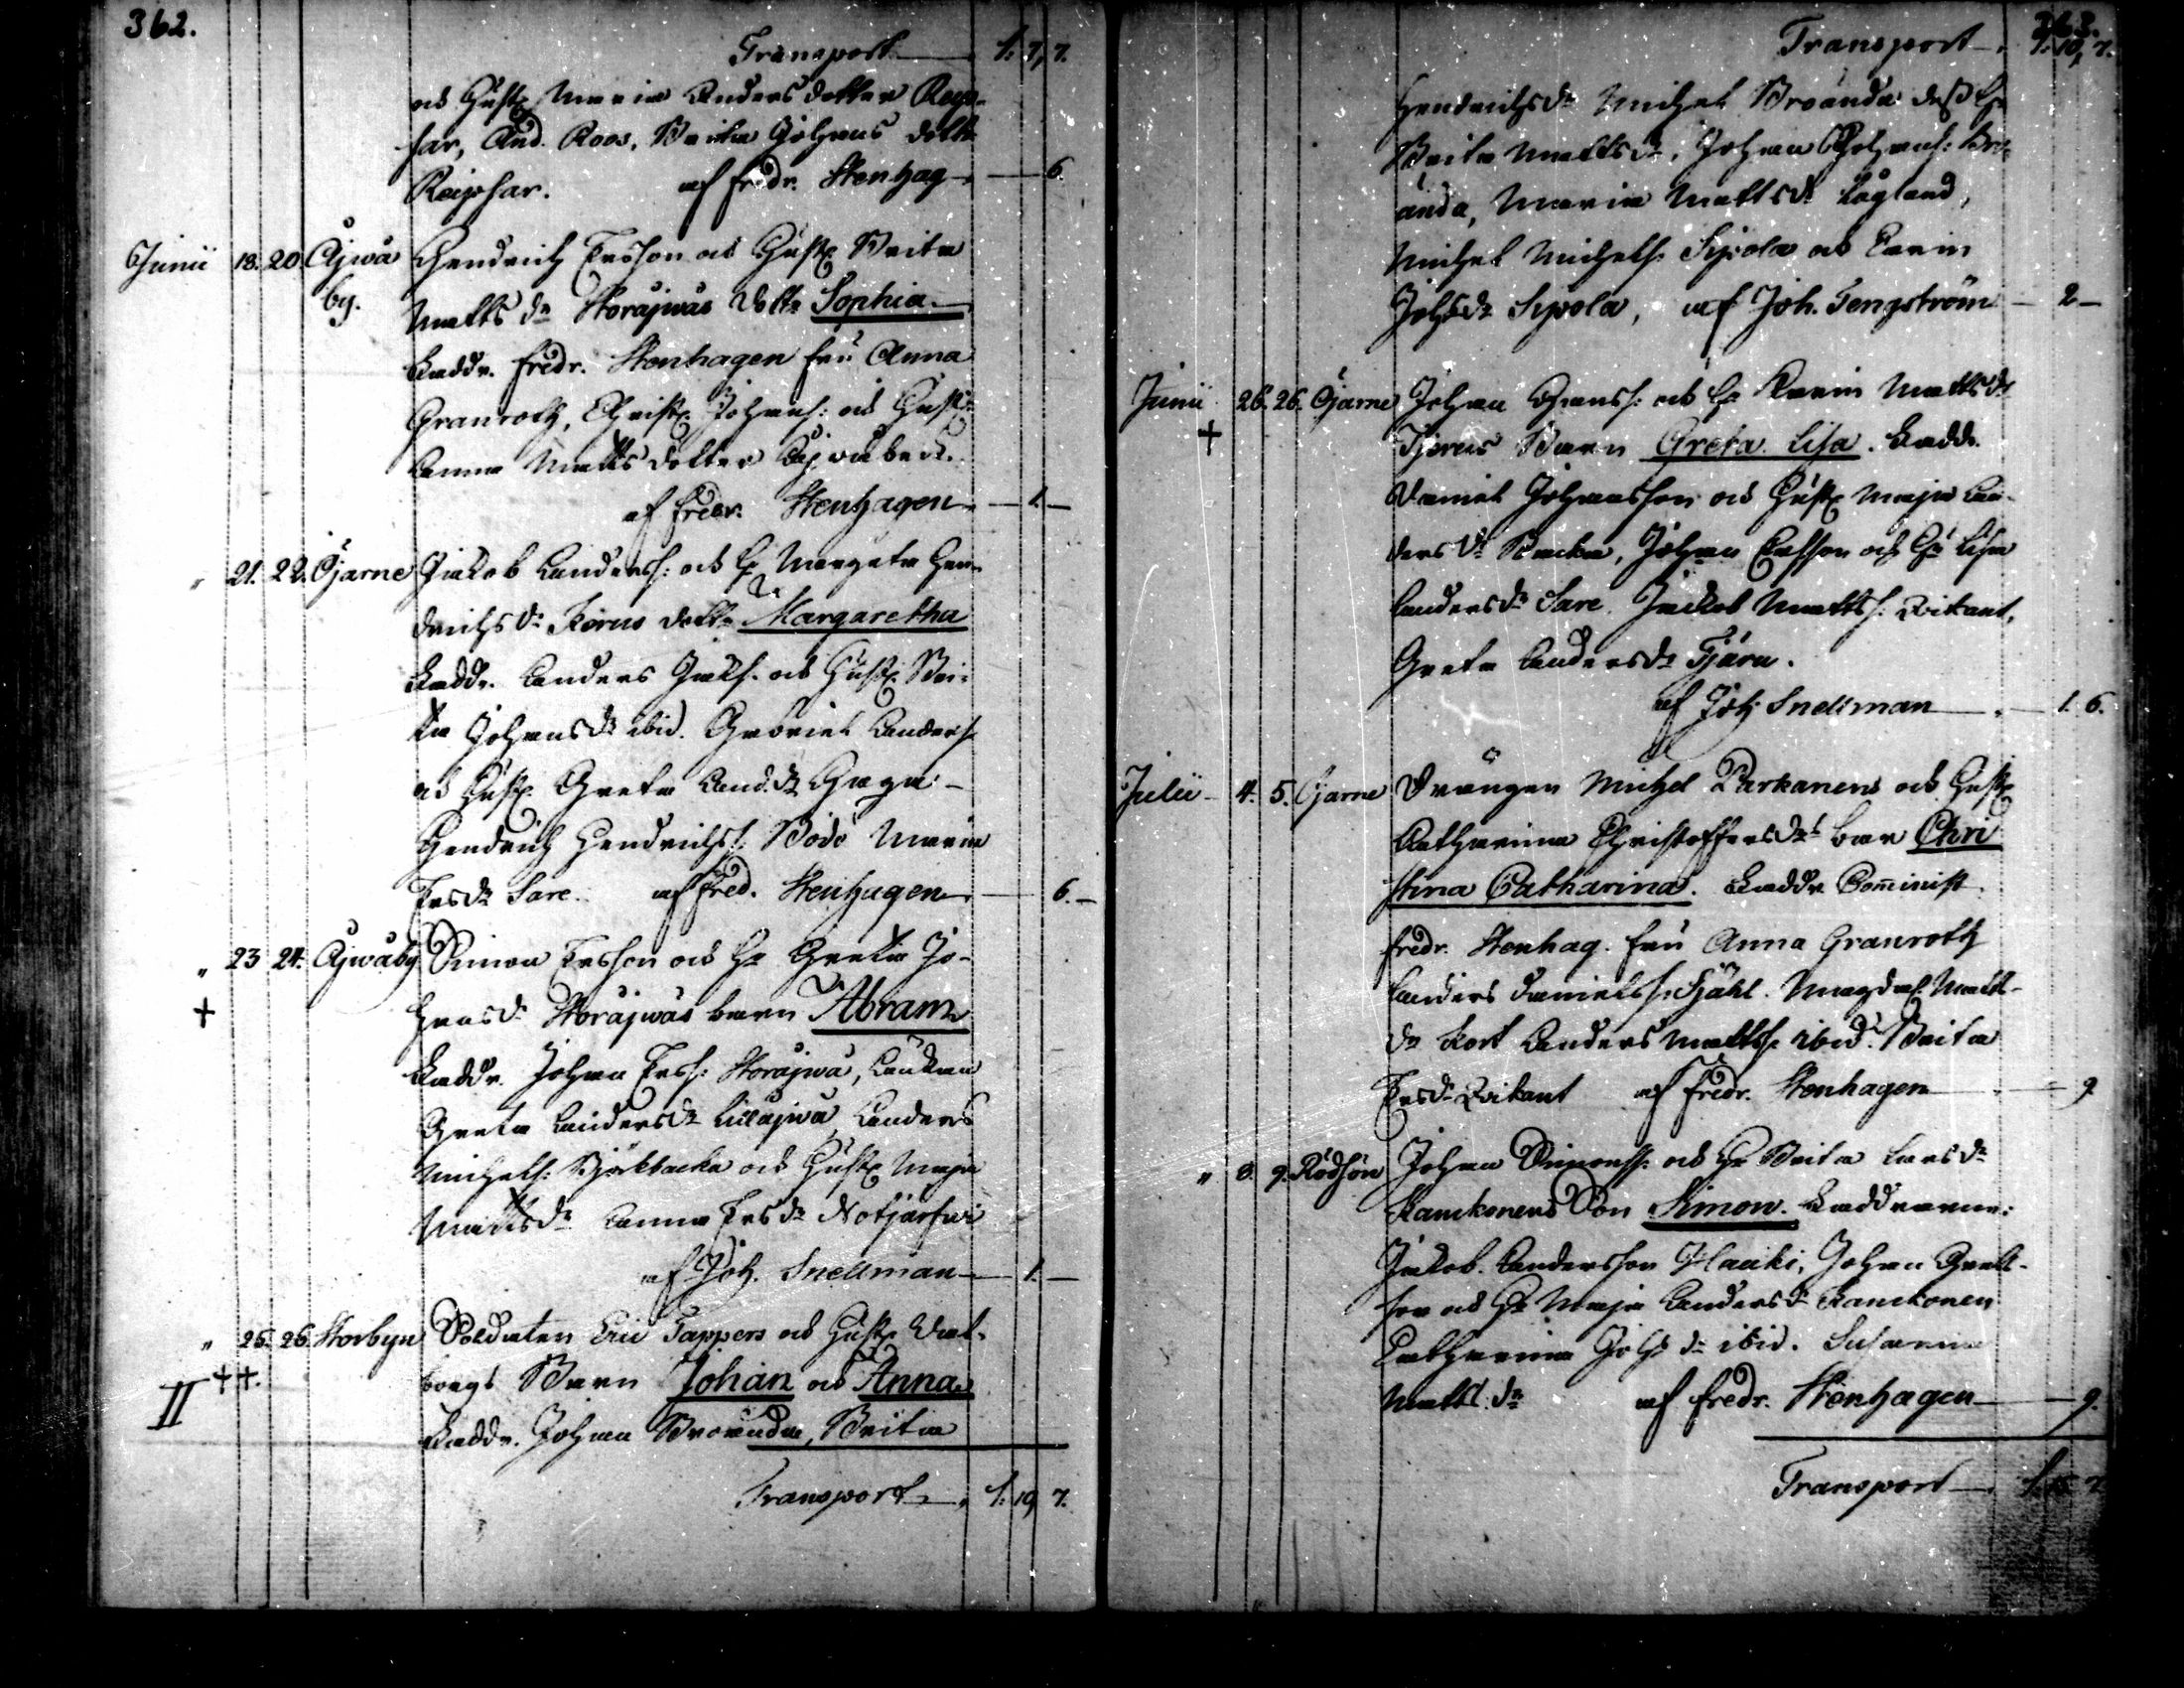 362.
Transport 1. 7, 7.
och Hust Maria Anders dotter Reip-
sar, And. Roos, Brita Johans dott
Reipsar. af Fredr. Stenhag 6
Junii 18. 20 Ajwå Hendrich Ersson och Hust Brita
by. Matts dr Storåjwås dottr Sophia
Faddr. Fredr. Stenhagen fru Anna
Granroth, Christ Johans: och Hust
Anna Matts dotter Ajwåback.
af Fredr. Stenhagen 1.
" 21. 22. Öjarne Jakob Anderss: och H Margeta Hen-
drichs dr Körus dottr Margaretha
Faddr. Anders Jacks. och Hust Bri-
ta Johans dr ibid. Gabriel Anders
och Hust Greta And. dr Haga
Hendrich Hendrichss. Bodö Maria
Ers dr Sare. af Fred. Stenhagen 6.
" 23 24. Ajwåby Simon Ersson och Hu Greta Jo-
+ hans dr Storåjwås barn Abram
Faddr. Johan Erss: Storåjwå, Enkan
Greta Anders dr Lillåjwå Anders
Michels: Björkbacka och Hust Maja
Matts dr Anna Ers dr Notjärfwi
af Joh. Snellman 1.
" 25. 26. Storbyn Soldaten Eric Tappers och Hust Wal-
++. borgs Barn Johan och Anna
II Faddr. Johan Broända, Brita
Transport 1. 10, 7.
363.
Transport 1. 10, 7.
Hendrichs dr Michel Broända dess H
Brita Matts dr, Johan Johans: Bro-
ända, Maria Matts dr Lågland,
Michel Michels: Sipola och Carin
Johs dr Sipola, af Joh. Tengström 2
Junii 26. 26. Öjarne Johan Hanss: och H Karin Matts dr
+ Tjerus Barn Greta Lisa. Fadd.
Daniel Johansson och Hust Maja An-
ders dr Backa, Johan Ersson och Hu Lisa
Anders dr Sare. Jackob Mattss: Wikant,
Greta Anders dr Tjäru.
af Joh Snellman 1. 6.
Julii 4. 5. Öjarne Drängen Michel Parkanens och Hust
Catharina Christoffers drs bar Chri
stina Catharina. Faddr Cominist.
Fredr. Stenhag. fru Anna Granroth
Anders Danielss: Fjähl. Magdal. Matts
dr Kort Anders Mattss. ibid. Brita
Ers dr Wikant af Fredr. Stenhagen 9
" 8. 9. Rödsön Johan Simonss: och Hu Brita Lars dr
Kamkonens Son Simon. Faddrarne:
Jakob. Andersson Haaki, Johan Gret-
son och Hu Maja Anders dr Kamkonen
Catharina Johs dr ibid. Susanna
Matts. dr af Fredr. Stenhagen 9.
Transport 1. 15 7